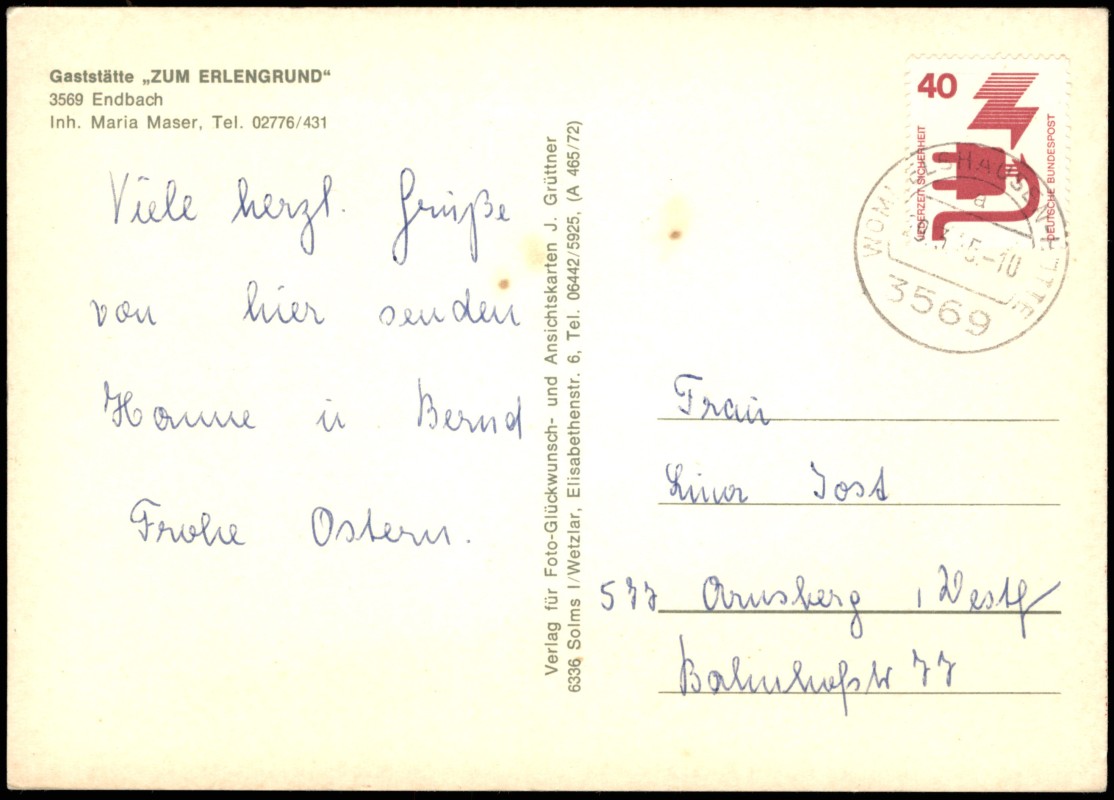 Gaststätte „ZUM ERLENGRUND“
3569 Endbach
Inh. Maria Maser, Tel. 02776/431
Viele herzl. Grüße
von hier senden
Hanne u Bernd
Frohe Ostern.
Verlag für Foto-Glückwunsch- und Ansichtskarten J. Grüttner
6336 Solms I/Wetzlar, Elisabethenstr. 6, Tel. 06442/5925, (A 465/72)
40
JEDERZEIT SICHERHEIT
DEUTSCHE BUNDESPOST
a
-10
3569
Frau
Lina Jost
577 Arnsberg i Westf
Bahnhofstr 77